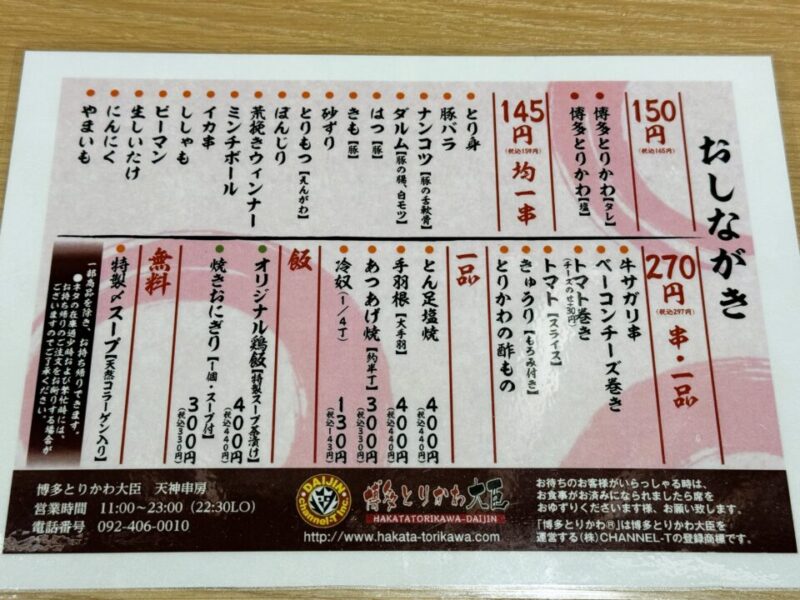 おしながき
150円(税込165円)
博多とりかわ【タレ】
博多とりかわ【塩】
145円(税込159円)均一串
とり身
豚バラ
ナンコツ【豚の舌軟骨】
ダルム【豚の腸、白モツ】
はつ【豚】
きも【豚】
砂ずり
とりもつ【えんがわ】
ぼんじり
荒挽きウィンナー
ミンチボール
イカ串
ししゃも
ピーマン
生しいたけ
にんにく
やまいも
270円(税込297円)串・一品
牛サガリ串
ベーコンチーズ巻き
トマト巻き
(チーズのせ+30円)
トマト【スライス】
きゅうり【もろみ付き】
とりかわの酢もの
一品
とん足塩焼 400円(税込440円)
手羽根【大手羽】 400円(税込440円)
あつあげ焼【約半丁】 300円(税込330円)
冷奴(1/4丁) 130円(税込143円)
飯
オリジナル鶏飯【特製スープ茶漬け】 400円(税込440円)
焼きおにぎり【一個・スープ付】 300円(税込330円)
無料
特製〆スープ【天然コラーゲン入り】
一部商品を除き、お持ち帰りできます。
●ネタの在庫過少時および繁忙時には、
お持ち帰りのご注文をお断りする場合が
ございますのでご了承ください。
博多とりかわ大臣 天神串房
営業時間 11:00~23:00(22:30LO)
電話番号 092-406-0010
DAIJIN
Channel-T Inc.
博多とりかわ大臣
HAKATATORIKAWA-DAIJIN
http://www.hakata-torikawa.com/
お待ちのお客様がいらっしゃる時は、
お食事がお済みになられましたら席を
おゆずりくださいます様、お願い致します。
「博多とりかわ®」は博多とりかわ大臣を
運営する(株)CHANNEL-Tの登録商標です。